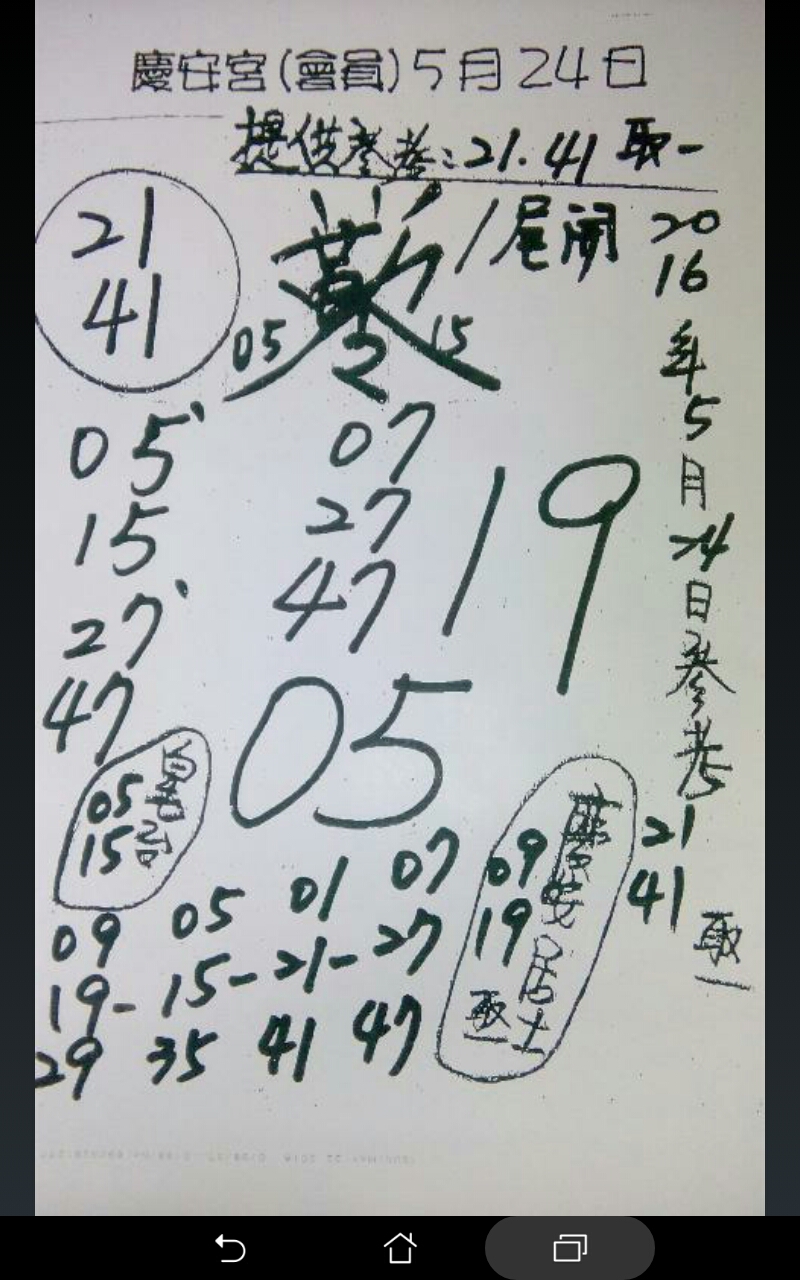 慶安宮(會員)5月24日
提供參考:21.41 取一
21
41
1尾開
05 15
2016年5月24日參考
21
41
取一
05
15
27
47
07
27
47
19
05
05
15
慶安居士
09
19
取一
09 05 01 07
19-15-21-27
29 35 41 47